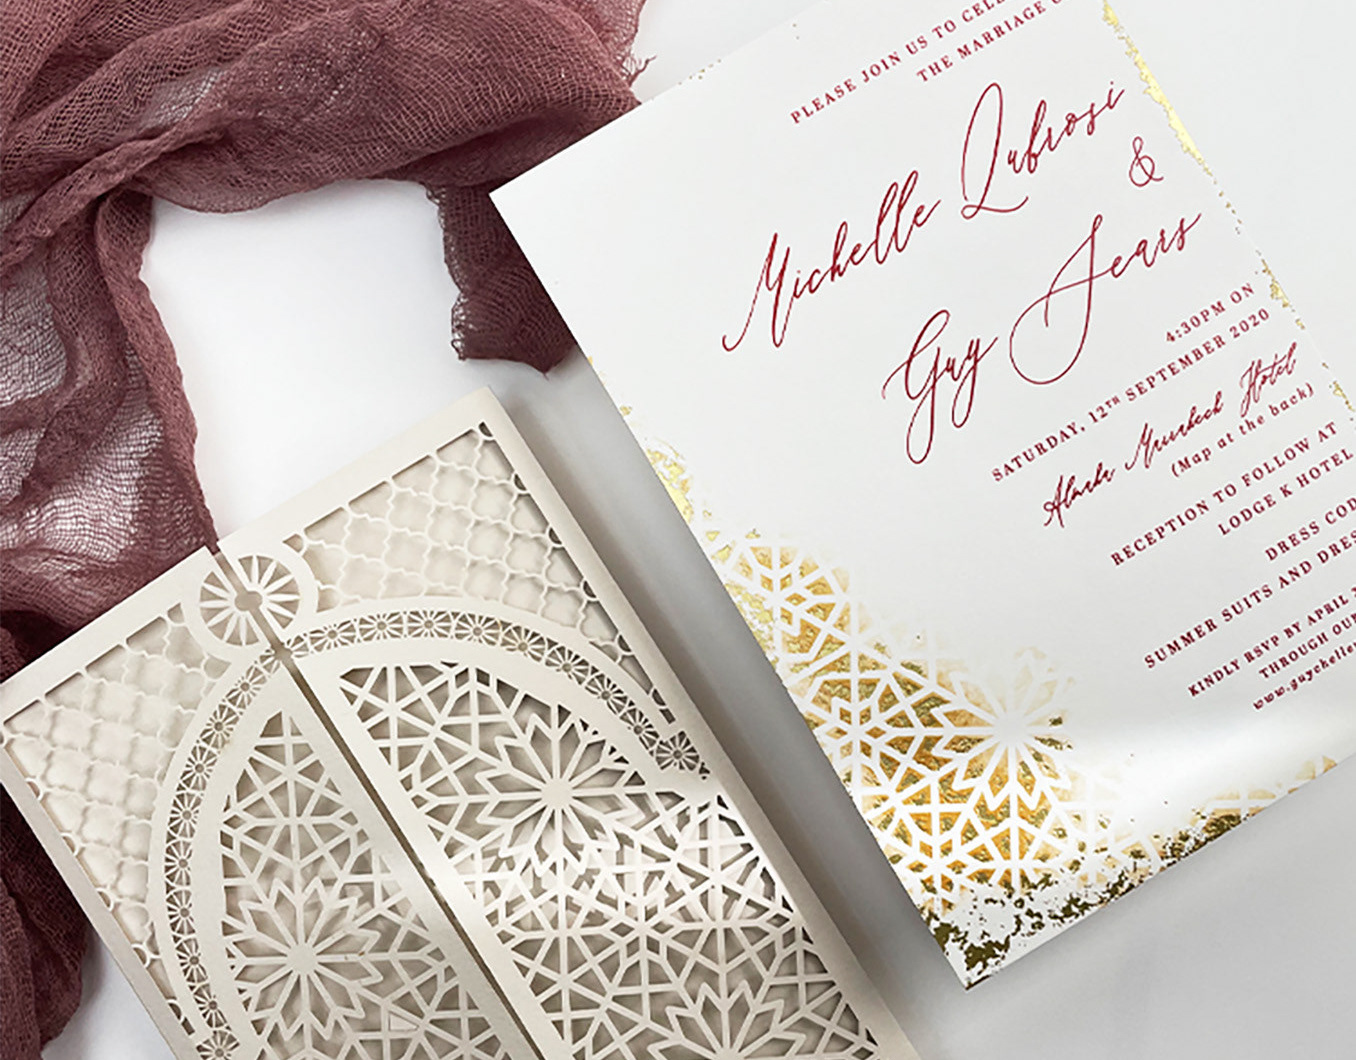 PLEASE JOIN US TO CELE
THE MARRIAGE O
Michelle Qubrosi
&
Guy Jears
4:30PM ON
SATURDAY, 12TH SEPTEMBER 2020
Hotel
(Map at the back)
RECEPTION TO FOLLOW AT
LODGE K HOTEL
DRESS COD
SUMMER SUITS AND DRES
KINDLY RSVP BY APRIL
THROUGH OUR
www.guychelle